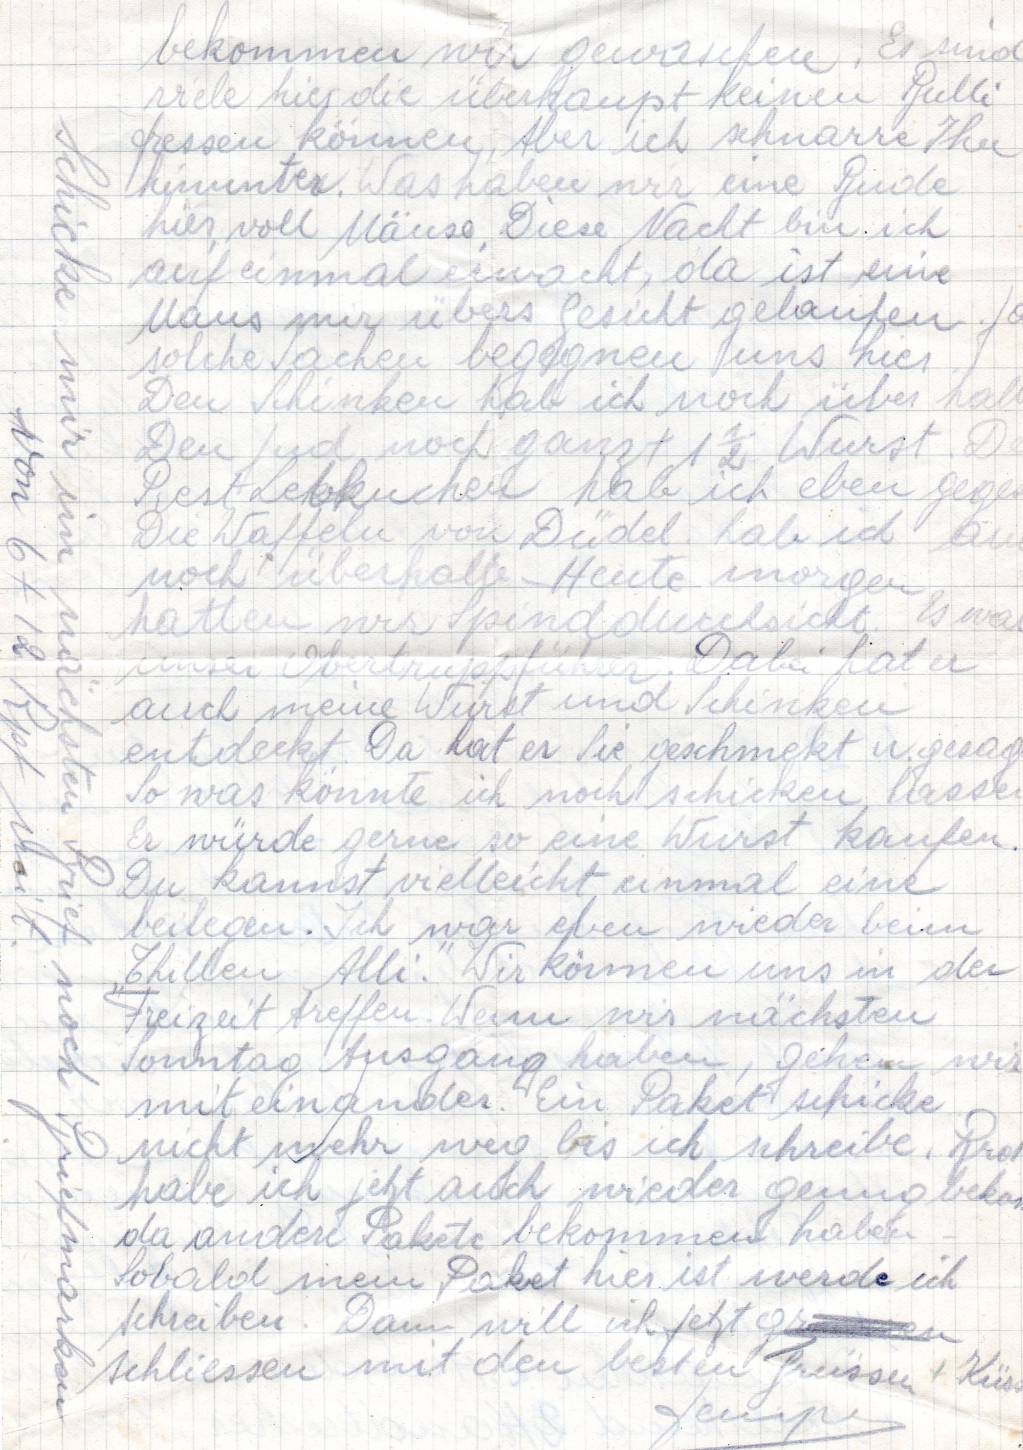 bekommen wir gewaschen. Es sind
viele hier die überhaupt keinen Pulli
fressen können, Aber ich schnarre Ihn
hinunter. Was haben wir eine Bude
hier voll Mäuse. Diese Nacht bin ich
auf einmal erwacht, da ist eine
Maus mir übers Gesicht gelaufen. Ja
solche Sachen begegnen uns hier
Den Schinken hab ich noch über halb
Den noch ganz + 1 1/2 Wurst. De
Rest Lebkuchen hab ich eben geges
Die Waffeln von Düdel hab ich auc
noch überhalb. Heute morgen
hatten wir Spinddurchsicht. Es war
unser Obertruppführer. Dabei hat er
auch meine Wurst und Schinken
entdeckt. Da hat er Sie geschmekt u. gesag
So was könnte ich noch schicken lassen
Er würde gerne so eine Wurst kaufen.
Du kannst vielleicht einmal eine
beilegen. Ich war eben wieder beim
„Thillen Alli." Wir können uns in der
Freizeit treffen. Wenn wir nächsten
Sonntag Ausgang haben, gehen wir
miteinander. Ein Paket schicke
nicht mehr weg bis ich schreibe. Brot
habe ich jetzt auch wieder genug bekom
da andere Pakete bekommen haben
Sobald mein Paket hier ist werde ich
schreiben. Dann will ich jetzt
schliessen mit den besten Grüssen + Küss
Schicke mir im nächsten Brief noch Briefmarken
von 6 + 12 Rpf mit.